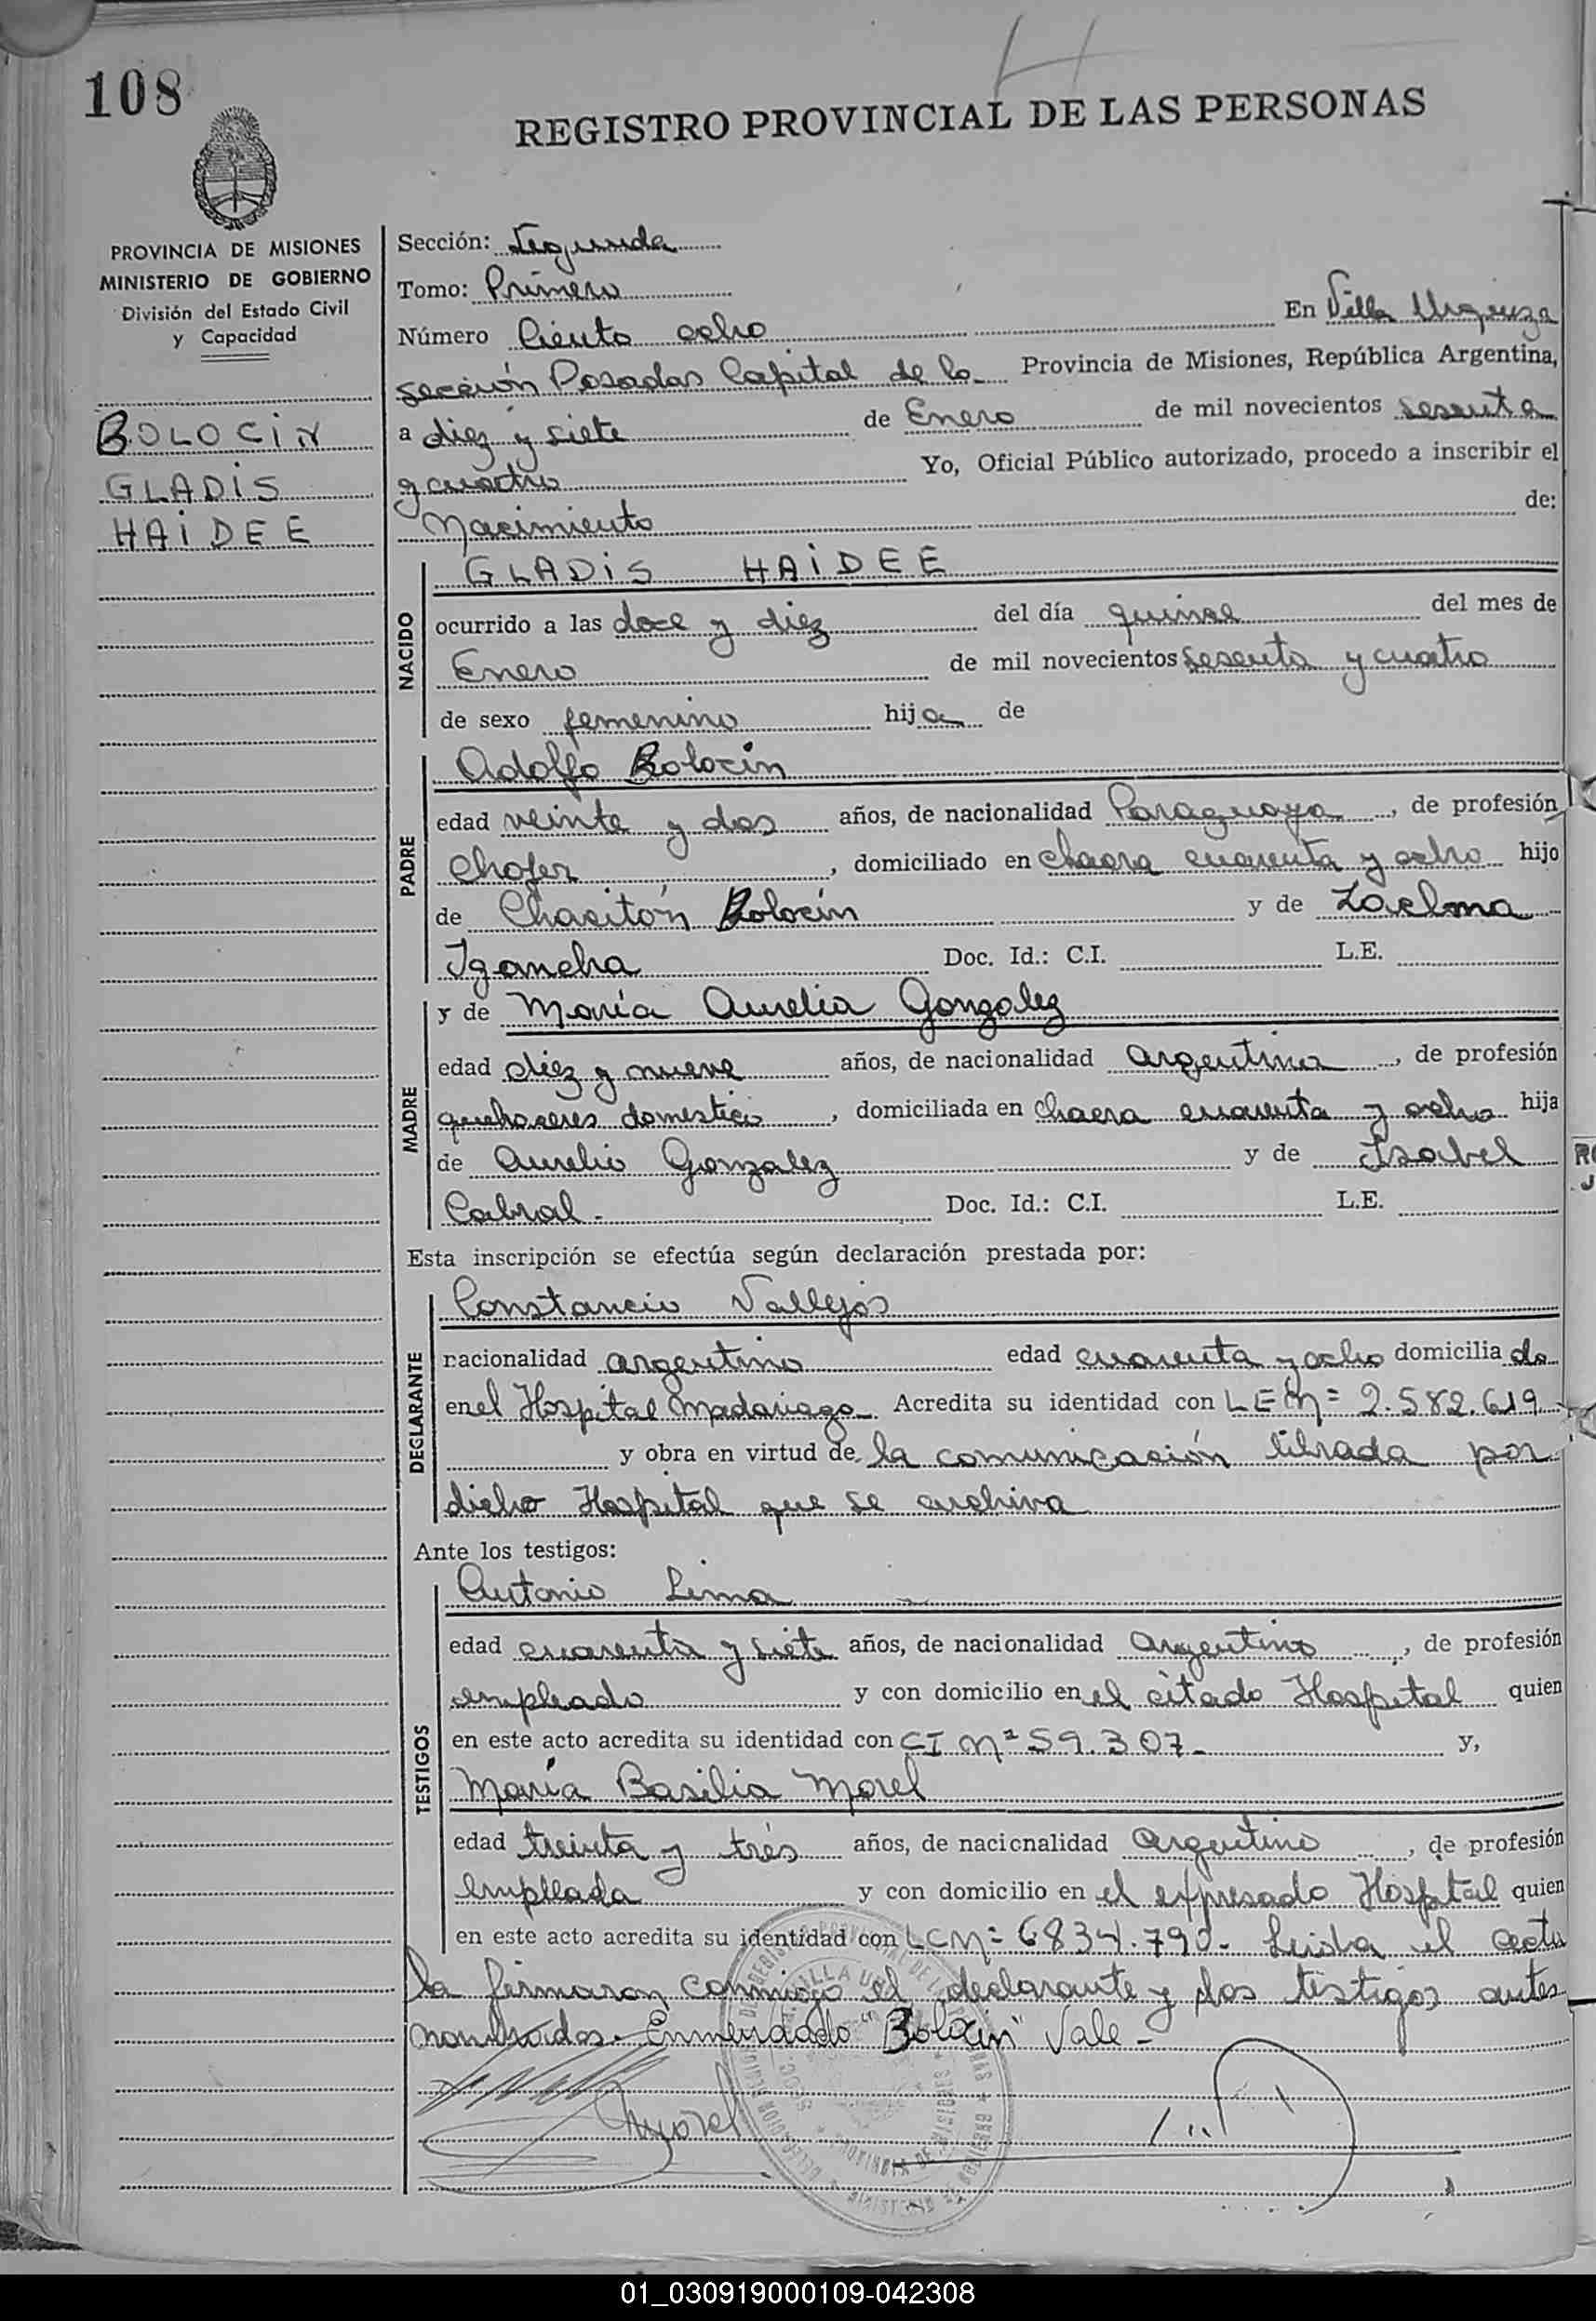 108
REGISTRO PROVINCIAL DE LAS PERSONAS
PROVINCIA DE MISIONES
MINISTERIO DE GOBIERNO
División del Estado Civil
y Capacidad
BOLOCIN
GLADIS
HAIDEE
Sección: Segunda
Tomo: Primero
Número Ciento ocho En Villa Urquiza
sección Posadas Capital de la Provincia de Misiones, República Argentina,
a diez y siete de Enero de mil novecientos sesenta
y cuatro Yo, Oficial Público autorizado, procedo a inscribir el
Nacimiento de:
NACIDO
GLADIS HAIDEE
ocurrido a las doce y diez del día quince del mes de
Enero de mil novecientos sesenta y cuatro
de sexo femenino hija de
PADRE
Adolfo Bolocin
edad veinte y dos años, de nacionalidad Paraguaya, de profesión
Chofer, domiciliado en chacra cuarenta y ocho hijo
de Charitón Bolocin y de Zaelma
Igancha Doc. Id.: C.I. L.E.
MADRE
y de María Aurelia Gonzalez
edad diez y nueve años, de nacionalidad argentina, de profesión
quehaceres domestico, domiciliada en chacra cuarenta y ocho hija
de Aurelio Gonzalez y de Isabel
Cabral.- Doc. Id.: C.I. L.E.
Esta inscripción se efectúa según declaración prestada por:
DECLARANTE
Constancio Vallejos
nacionalidad argentino edad cuarenta y ocho domicilia do
en el Hospital Madariaga Acredita su identidad con L E Nº 2.582.619
y obra en virtud de la comunicación librada por
dicho Hospital que se archiva
Ante los testigos:
TESTIGOS
Antonio Lima
edad cuarenta y siete años, de nacionalidad Argentino, de profesión
empleado y con domicilio en el citado Hospital quien
en este acto acredita su identidad con CI Nº 59.307- y,
María Basilia Morel
edad treinta y trés años, de nacionalidad Argentino, de profesión
empleada y con domicilio en el expresado Hospital quien
en este acto acredita su identidad con LC Nº 6834.790- Leida el acta
la firmaron conmigo el declarante y los testigos antes
nombrados.- Enmendado Bolocin" Vale-
Morel
01_030919000109-042308